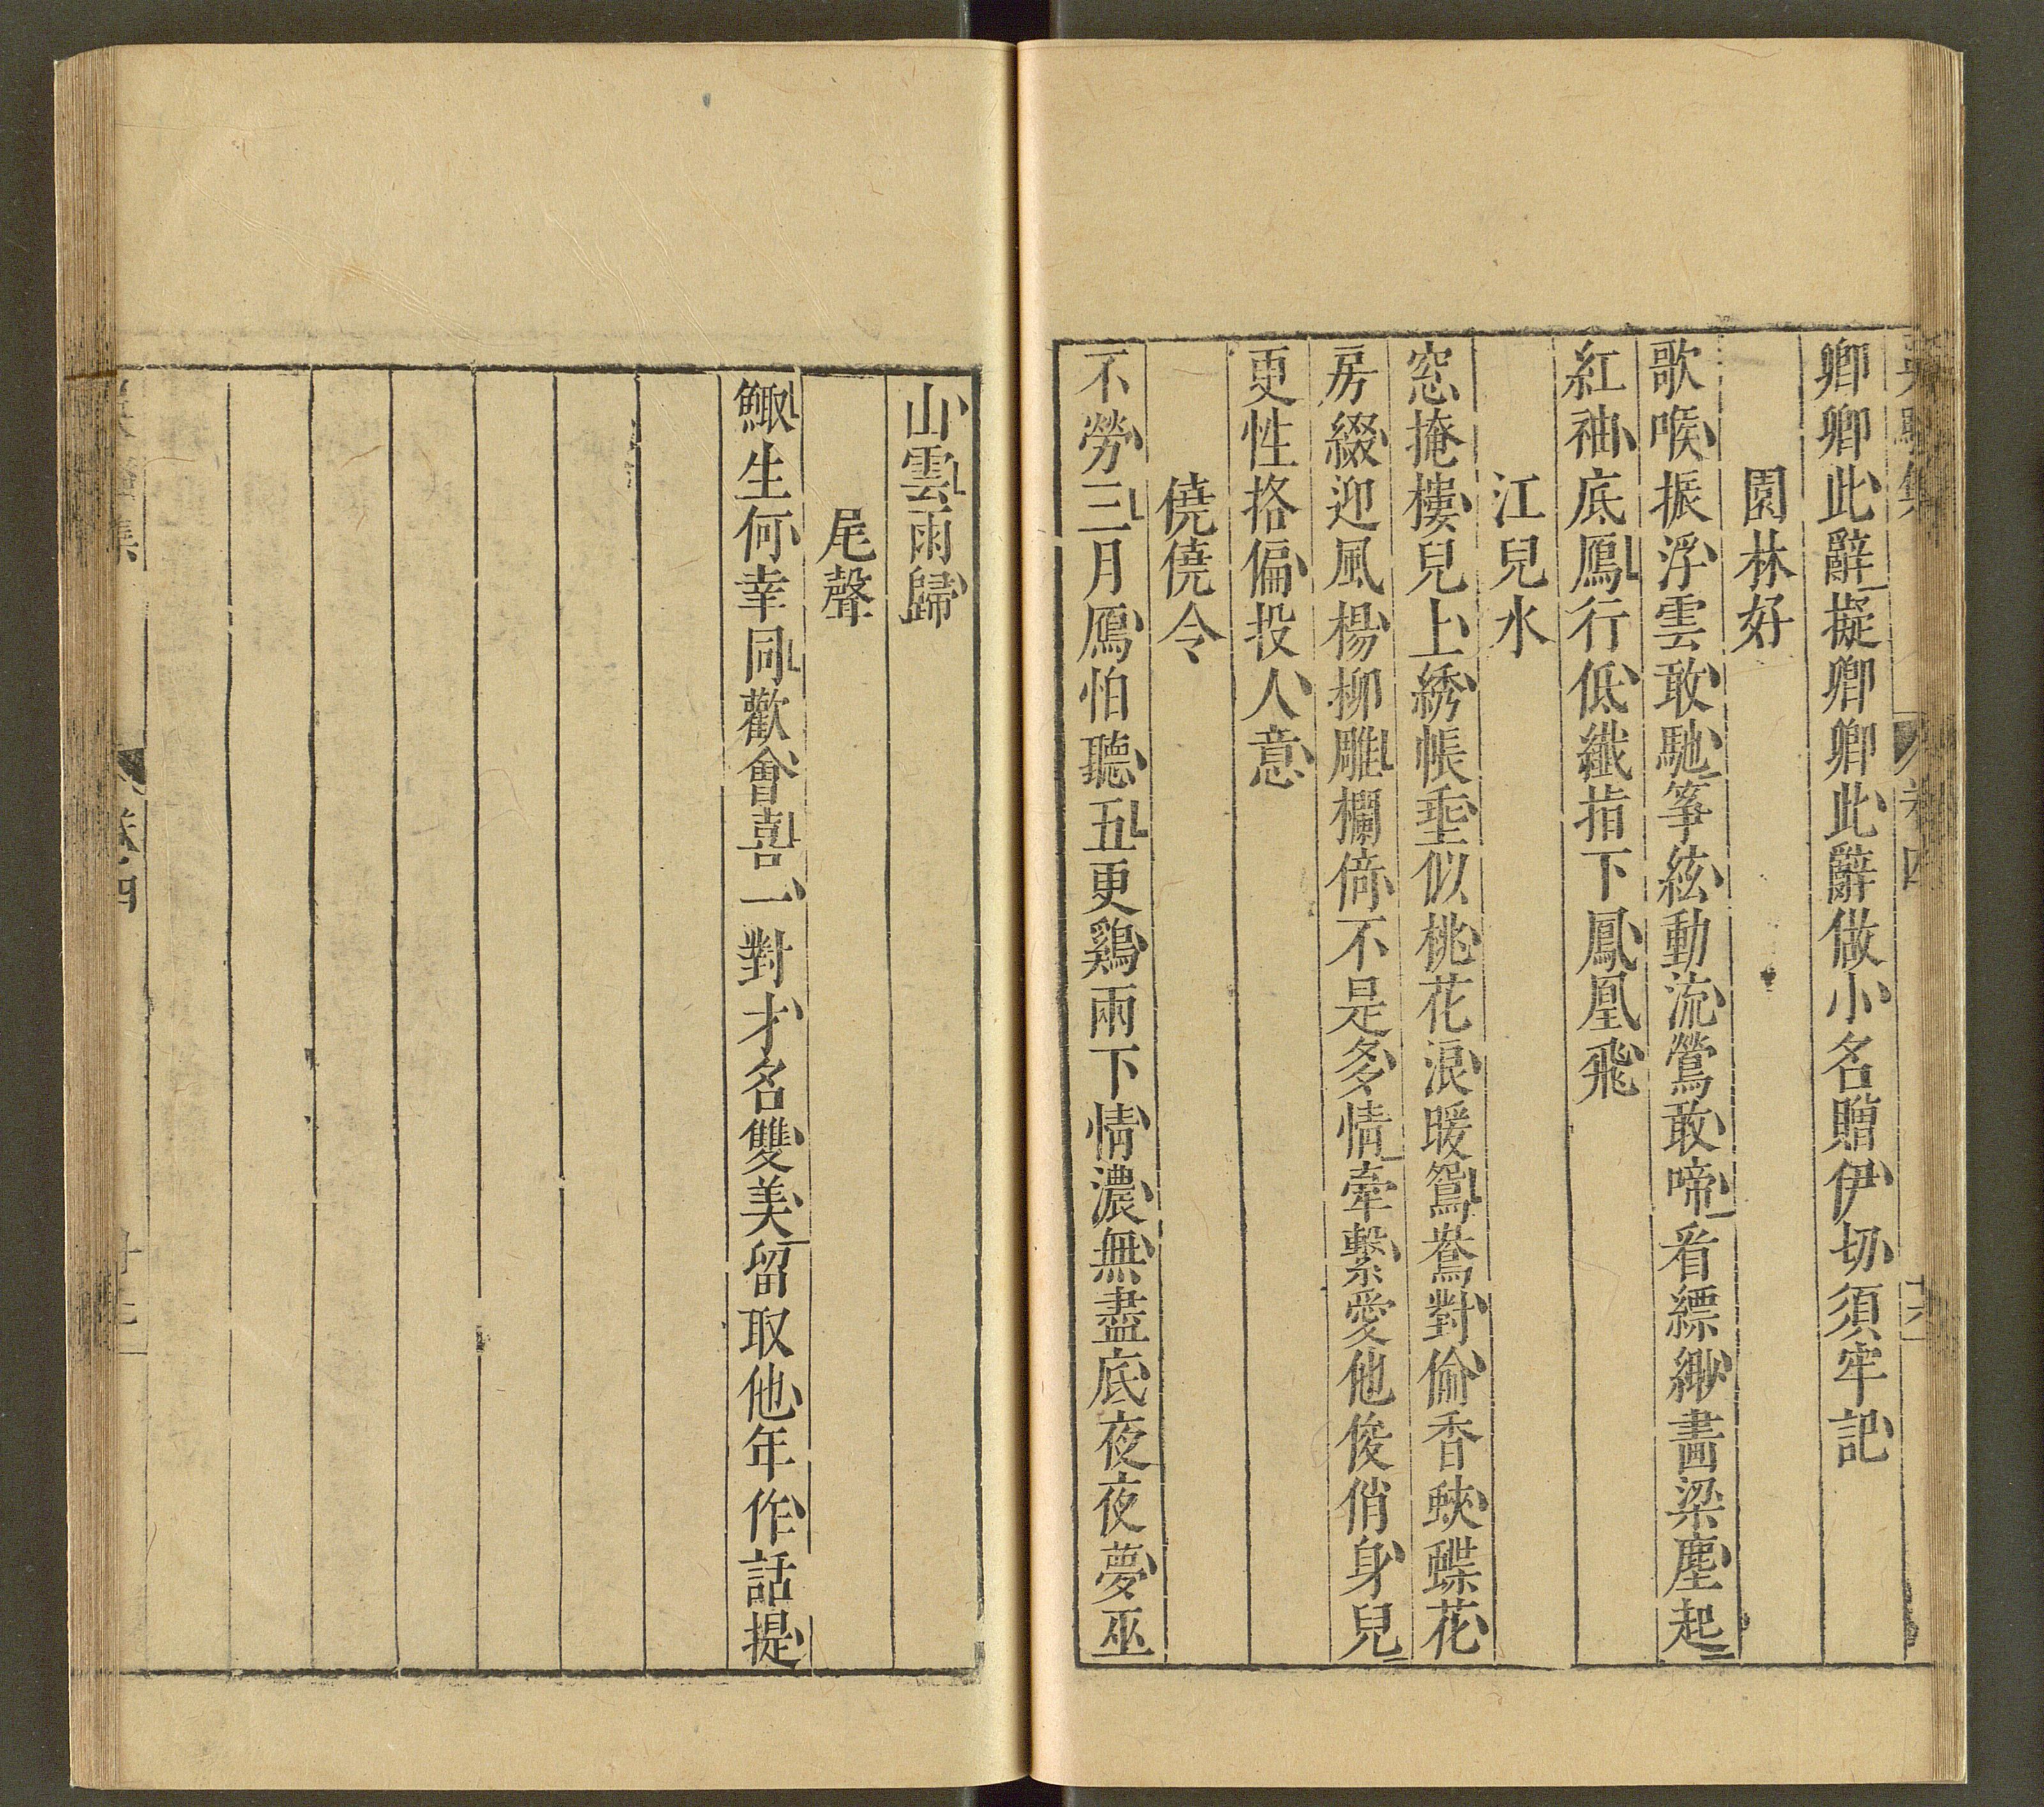 卿卿此辭擬卿卿此辭做小名贈伊切須牢記
園林好
歌喉振浮雲敢馳箏絃動流鶯敢啼看縹緲畵梁塵起
紅袖底鴈行低纖指下鳳凰飛
江兒水
窓掩樓兒上綉帳垂似桃花浪暖鴛鴦對偷香蛺蝶花
房綴迎風楊柳雕欄倚不是多情牽繫愛他俊俏身兒
更性格偏投人意
僥僥令
不勞三月鴈怕聽五更鷄兩下情濃無盡底夜夜夢巫
山雲雨歸
尾聲
鯫生何幸同歡會喜一對才名雙美留取他年作話提